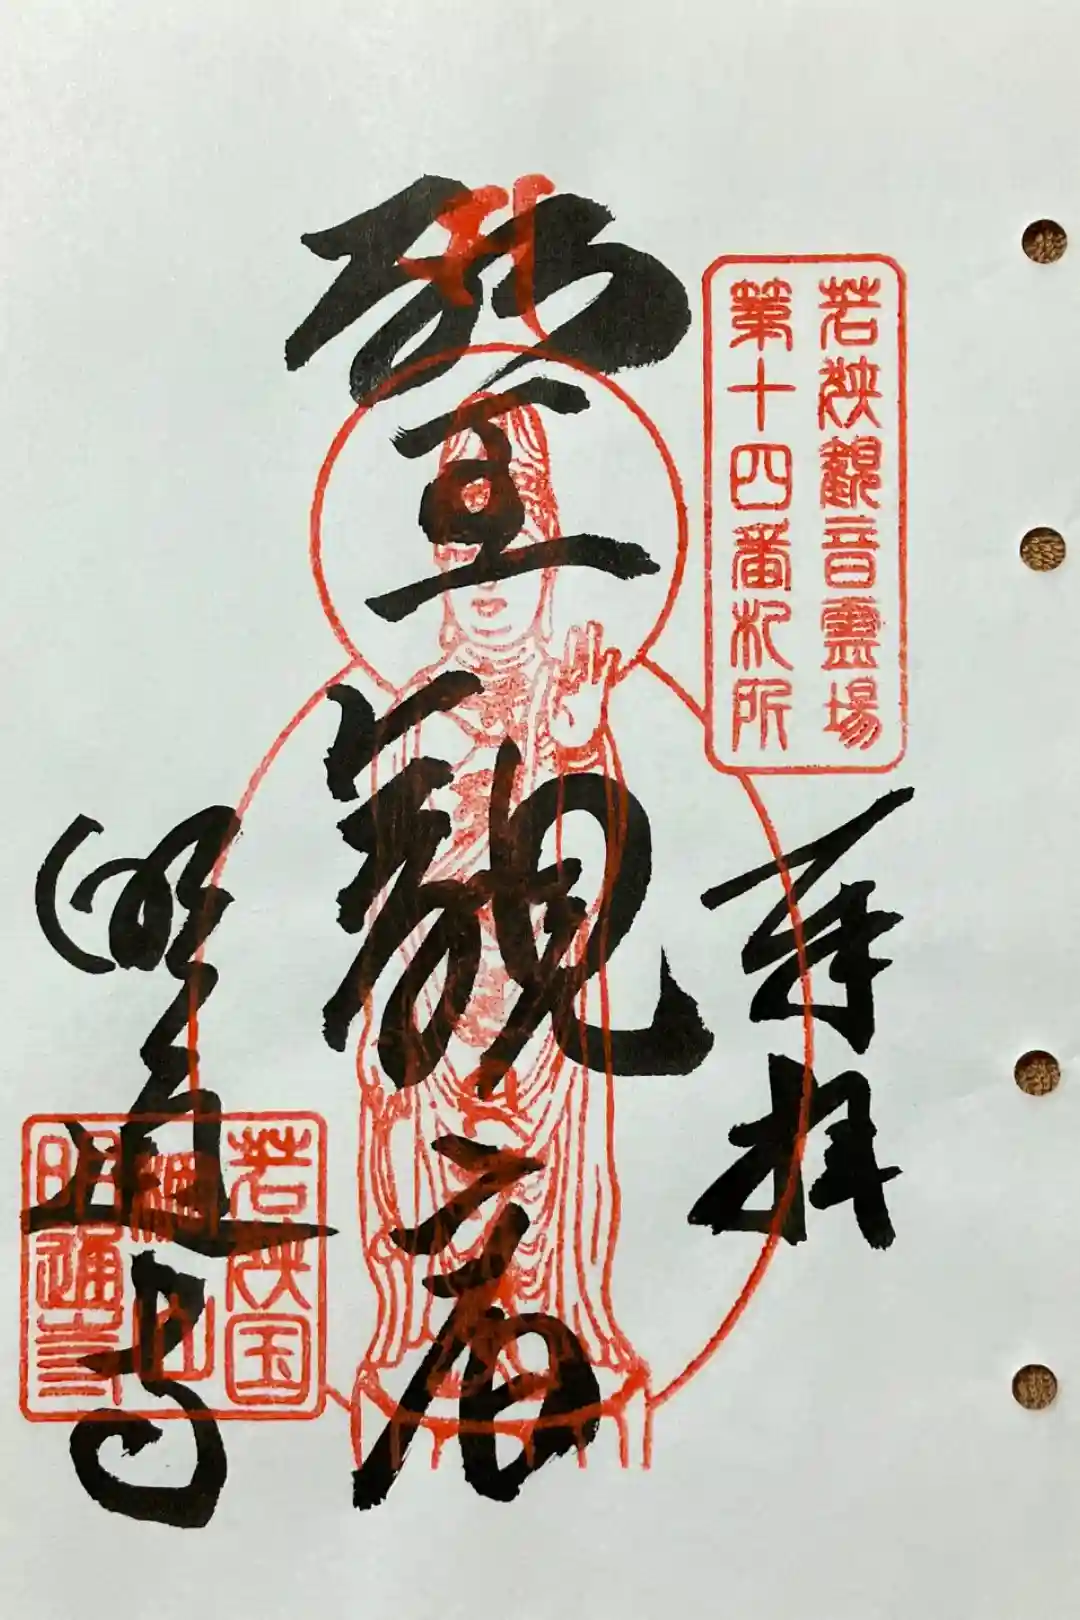 若狭観音霊場
第十四番札所
奉拝
聖観音
明通寺
若狭国
棡山
明通寺